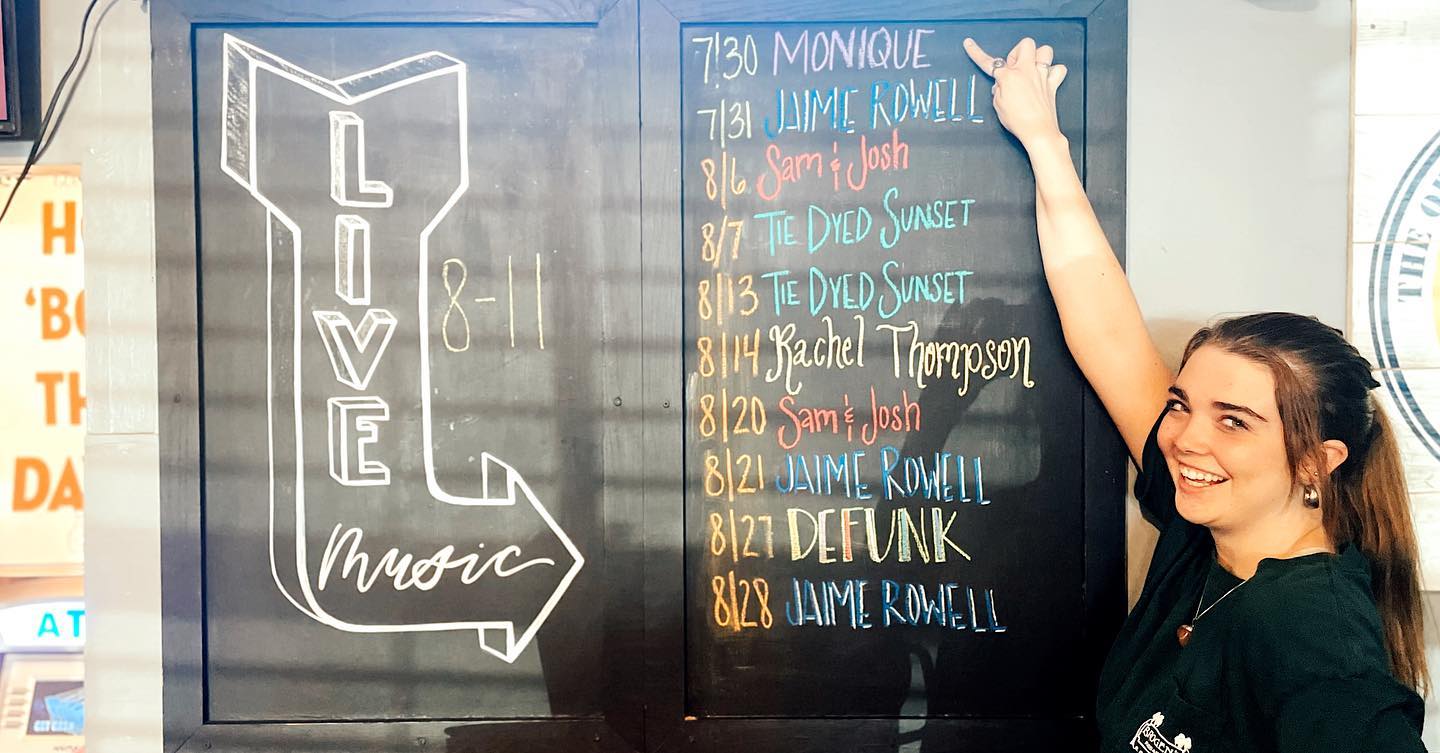 LIVE
Music
8-11
7/30 MONIQUE
7/31 JAIME ROWELL
8/6 Sam & Josh
8/7 TIE DYED SUNSET
8/13 TIE DYED SUNSET
8/14 Rachel Thompson
8/20 Sam & Josh
8/21 JAIME ROWELL
8/27 DEFUNK
8/28 JAIME ROWELL
'BO
TH
DA
AT
THE